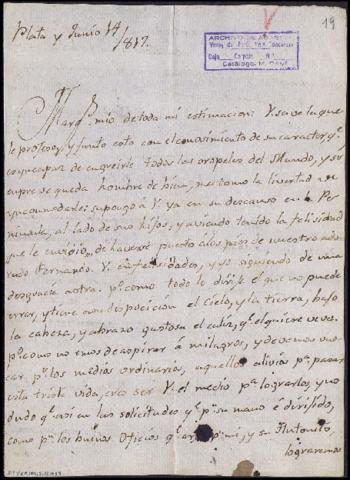 19
Plata y Junio 14
/817.
ARCHIVO
Caja Carpeta
Catálogo
Marq.s mio de toda mi estimacion: V. save lo que
le profeso, y junto esto con el conosimiento de su caracter, q.e
es yncapaz de engreirle todos los oropeles del Mundo, y si
empre se queda hombre de bien, me tomo la livertad de
yncomodarle: supongo á V. ya en su descanso en la Pe
ninsula, al lado de sus hijos, y aviendo tenido la felisidad
que le envidio, de haverse puesto a los pies de nuestro ado
rado Fernando. V. en felisidades, y yo siguiendo de una
desgracia a otra. p.o como todo lo dirije el que no puede
errar, y tiene a su disposicion el Cielo, y la tierra, bajo
la cabeza, y abrazo gustosa el caliz, q.e el quiere
p.o como no emos de aspirar á milagros, y devemos bus
car p.r los medios ordinarios, aquellos alivios p.a pasar
esta triste vida, creo ser V. el medio p.a lograrlos, y no
dudo q.e en las solicitudes q.e p.r su mano é dirijido,
como p.r los buenos oficios q.e p.r mi, y su Antonito,
lograremos